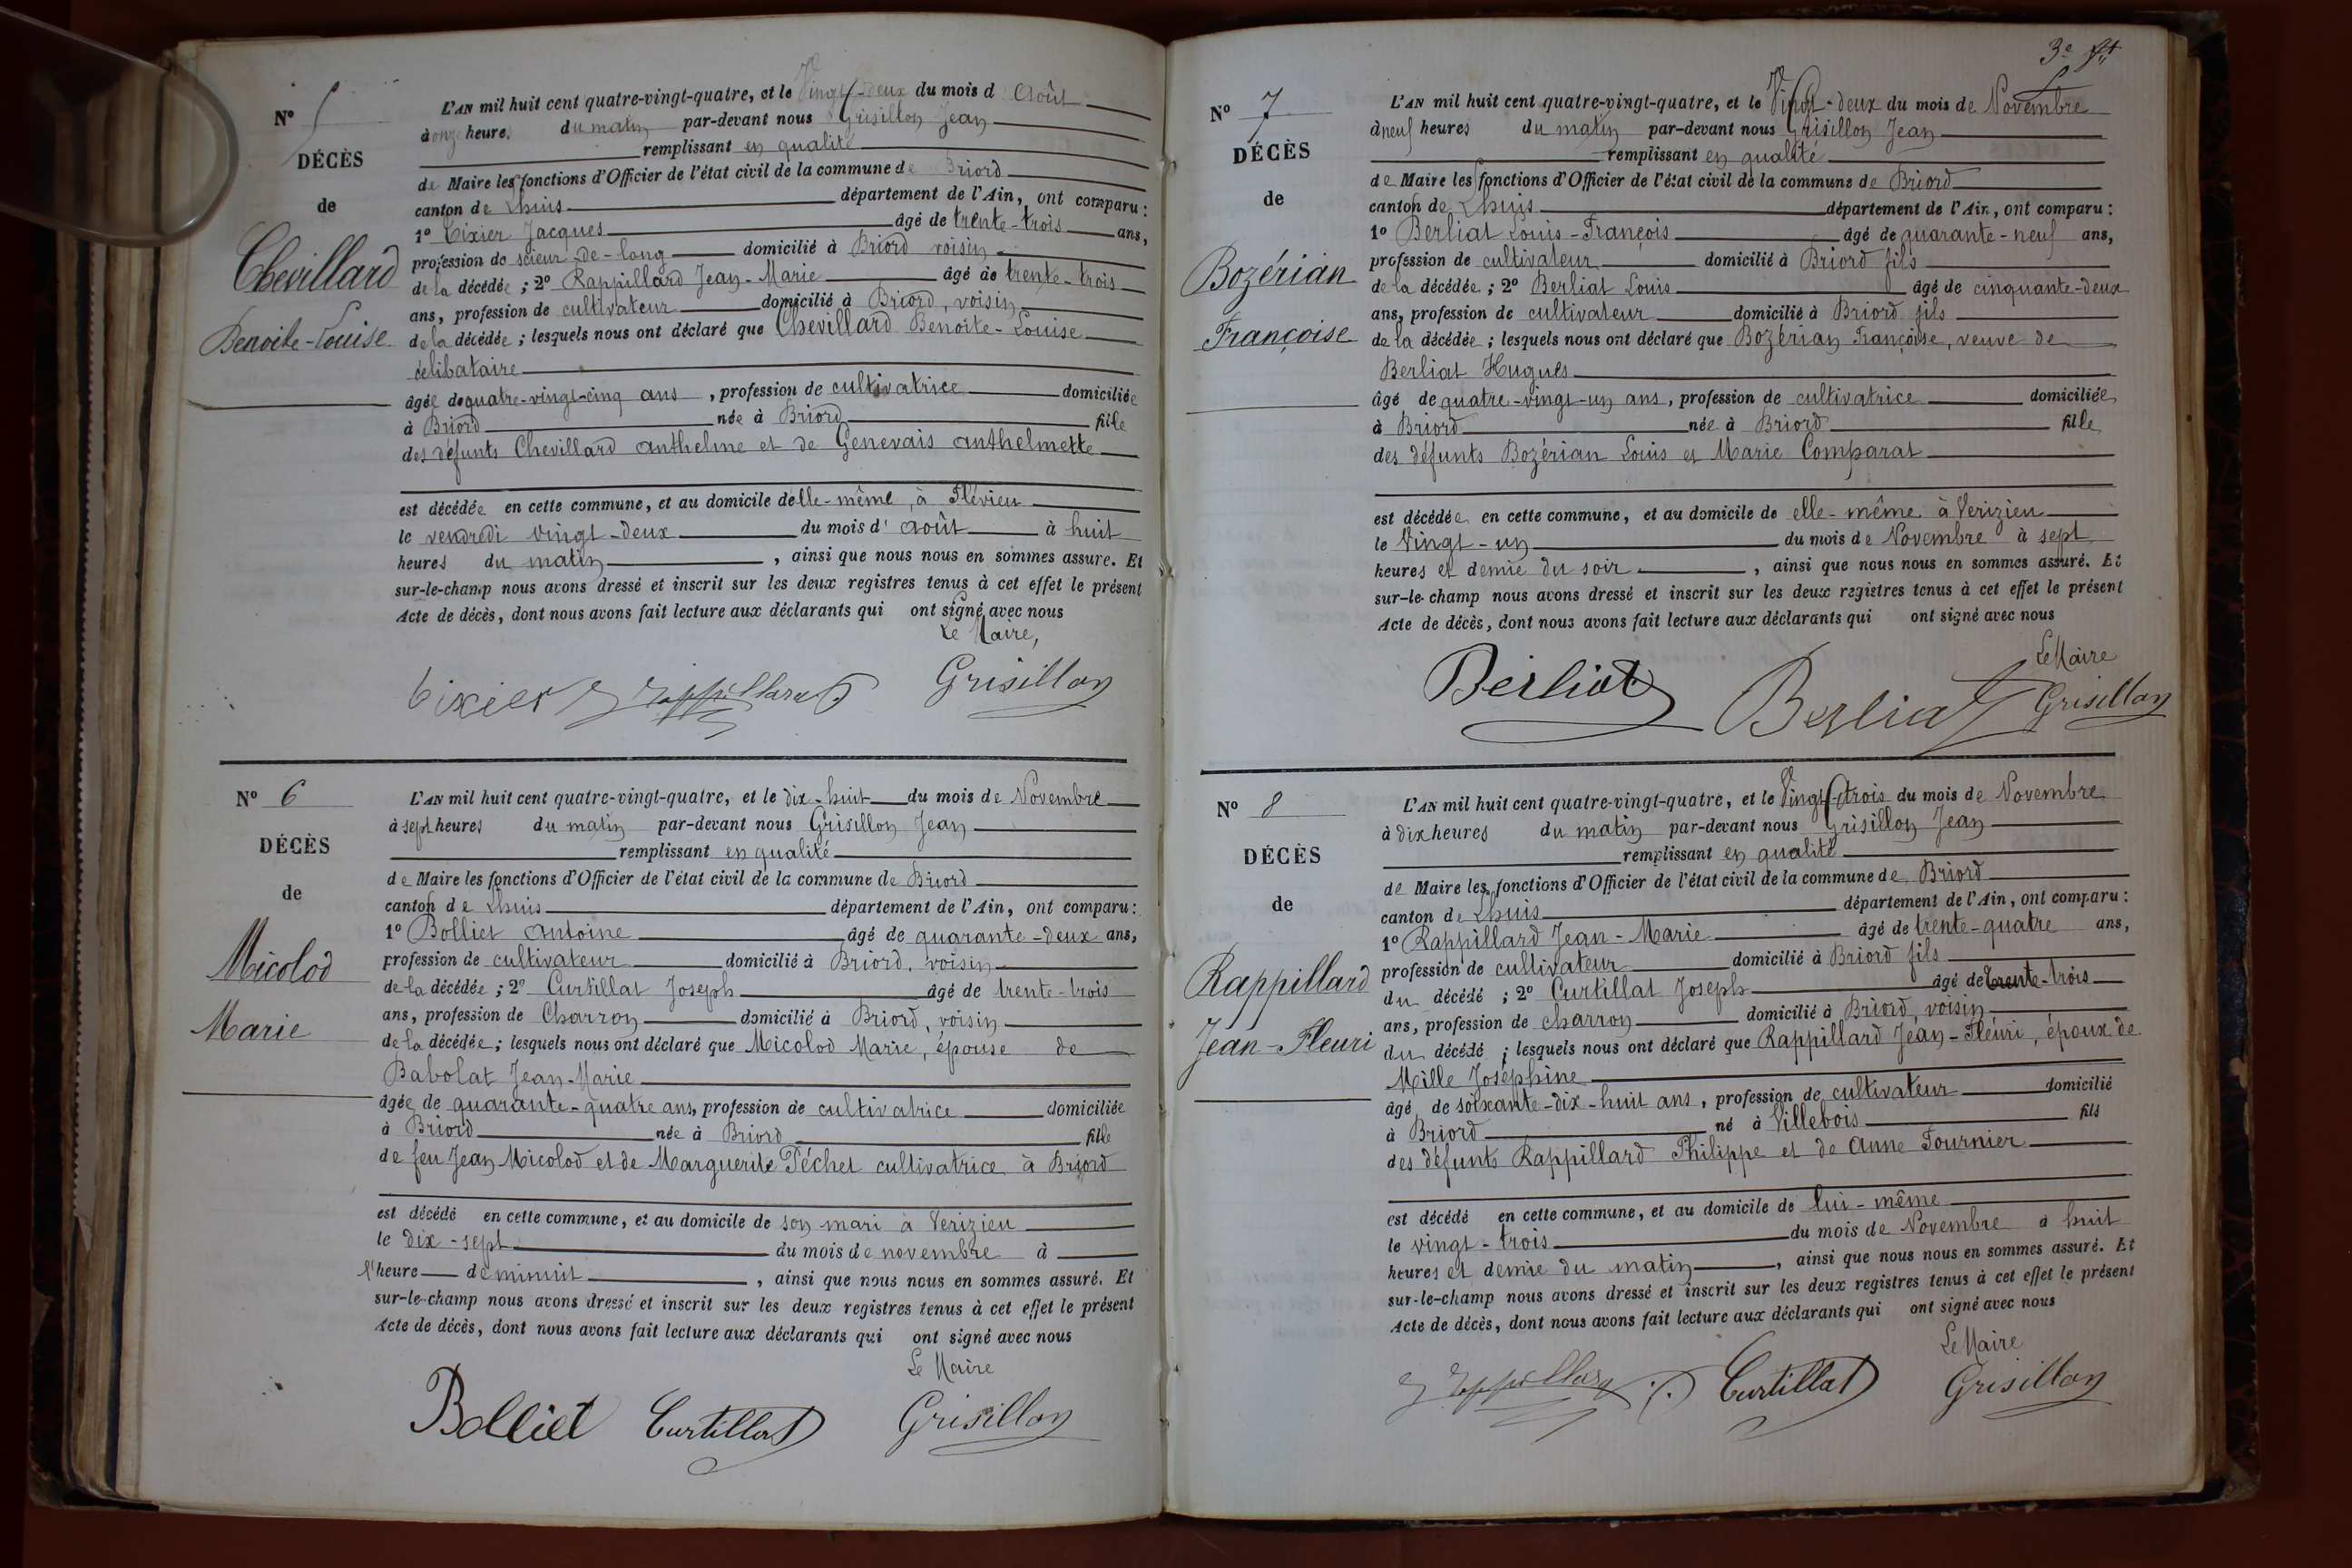 N° 5
DÉCÈS
de
Chevillard
Benoite-Louise
L'AN mil huit cent quatre-vingt-quatre, et le Vingt-deux du mois d'Août
à onze heures du matin par-devant nous Grisillon Jean
remplissant en qualité
de Maire les fonctions d'Officier de l'état civil de la commune de Briord
canton de Lhuis département de l'Ain, ont comparu :
1° Tixier Jacques âgé de trente-trois ans,
profession de scieur-de-long domicilié à Briord voisin
de la décédée ; 2° Rappillard Jean-Marie âgé de trente-trois
ans, profession de cultivateur domicilié à Briord, voisin
de la décédée ; lesquels nous ont déclaré que Chevillard Benoite-Louise
célibataire
âgée de quatre-vingt-cinq ans, profession de cultivatrice domiciliée
à Briord née à Briord fille
des défunts Chevillard Anthelme et de Genevais Anthelmette
est décédée en cette commune, et au domicile d'elle-même, à Flévieu
le vendredi vingt-deux du mois d'août à huit
heures du matin, ainsi que nous nous en sommes assuré. Et
sur-le-champ nous avons dressé et inscrit sur les deux registres tenus à cet effet le présent
Acte de décès, dont nous avons fait lecture aux déclarants qui ont signé avec nous
Le Maire,
Tixier Rappillard Grisillon
N° 6
DÉCÈS
de
Micolod
Marie
L'AN mil huit cent quatre-vingt-quatre, et le dix-huit du mois de Novembre
à sept heures du matin par-devant nous Grisillon Jean
remplissant en qualité
de Maire les fonctions d'Officier de l'état civil de la commune de Briord
canton de Lhuis département de l'Ain, ont comparu :
1° Bolliet Antoine âgé de quarante-deux ans,
profession de cultivateur domicilié à Briord, voisin
de la décédée ; 2° Curtillat Joseph âgé de trente-trois
ans, profession de Charron domicilié à Briord, voisin
de la décédée ; lesquels nous ont déclaré que Micolod Marie, épouse de
Babolat Jean-Marie
âgée de quarante-quatre ans, profession de cultivatrice domiciliée
à Briord née à Briord fille
de feu Jean Micolod et de Marguerite Péchet cultivatrice à Briord
est décédé en cette commune, et au domicile de son mari à Verizieu
le dix-sept du mois de novembre à
l'heure de minuit, ainsi que nous nous en sommes assuré. Et
sur-le-champ nous avons dressé et inscrit sur les deux registres tenus à cet effet le présent
Acte de décès, dont nous avons fait lecture aux déclarants qui ont signé avec nous
Le Maire
Bolliet Curtillat Grisillon
3e
N° 7
DÉCÈS
de
Bozérian
Françoise
L'AN mil huit cent quatre-vingt-quatre, et le Vingt-deux du mois de Novembre
à neuf heures du matin par-devant nous Grisillon Jean
remplissant en qualité
de Maire les fonctions d'Officier de l'état civil de la commune de Briord
canton de Lhuis département de l'Ain, ont comparu :
1° Berliat Louis-François âgé de quarante-neuf ans,
profession de cultivateur domicilié à Briord fils
de la décédée ; 2° Berliat Louis âgé de cinquante-deux
ans, profession de cultivateur domicilié à Briord fils
de la décédée ; lesquels nous ont déclaré que Bozérian Françoise, veuve de
Berliat Hugues
âgé de quatre-vingt-un ans, profession de cultivatrice domiciliée
à Briord née à Briord fille
des défunts Bozérian Louis et Marie Comparat
est décédée en cette commune, et au domicile de elle-même à Verizieu
le Vingt-un du mois de Novembre à sept
heures et demie du soir, ainsi que nous nous en sommes assuré. Et
sur-le-champ nous avons dressé et inscrit sur les deux registres tenus à cet effet le présent
Acte de décès, dont nous avons fait lecture aux déclarants qui ont signé avec nous
Le Maire
Berliat Berliat Grisillon
N° 8
DÉCÈS
de
Rappillard
Jean-Fleuri
L'AN mil huit cent quatre-vingt-quatre, et le Vingt-trois du mois de Novembre
à dix heures du matin par-devant nous Grisillon Jean
remplissant en qualité
de Maire les fonctions d'Officier de l'état civil de la commune de Briord
canton de Lhuis département de l'Ain, ont comparu :
1° Rappillard Jean-Marie âgé de trente-quatre ans,
profession de cultivateur domicilié à Briord fils
du décédé ; 2° Curtillat Joseph âgé de trente-trois
ans, profession de charron domicilié à Briord, voisin
du décédé ; lesquels nous ont déclaré que Rappillard Jean-Fleuri, époux de
Mille Joséphine
âgé de soixante-dix-huit ans, profession de cultivateur domicilié
à Briord né à Villebois fils
des défunts Rappillard Philippe et de Anne Fournier
est décédé en cette commune, et au domicile de lui-même
le vingt-trois du mois de Novembre à huit
heures et demie du matin, ainsi que nous nous en sommes assuré. Et
sur-le-champ nous avons dressé et inscrit sur les deux registres tenus à cet effet le présent
Acte de décès, dont nous avons fait lecture aux déclarants qui ont signé avec nous
Le Maire
Rappillard Curtillat Grisillon